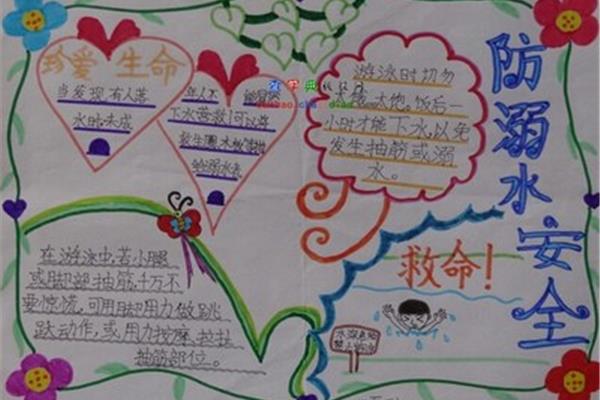 防溺水安全
珍爱生命
当发现有人落
水时,未成
年人不
下水营救!可以靠
救生圈,木板
给溺水者
游泳时切勿
太饱、饭后一
小时才能下水,以免
发生抽筋或溺
水。
在游泳中,若小腿
或脚部抽筋,千万不
要惊慌,可用脚用力做跳
跃动作,或用力按摩、拉扯
抽筋部位。
救命!